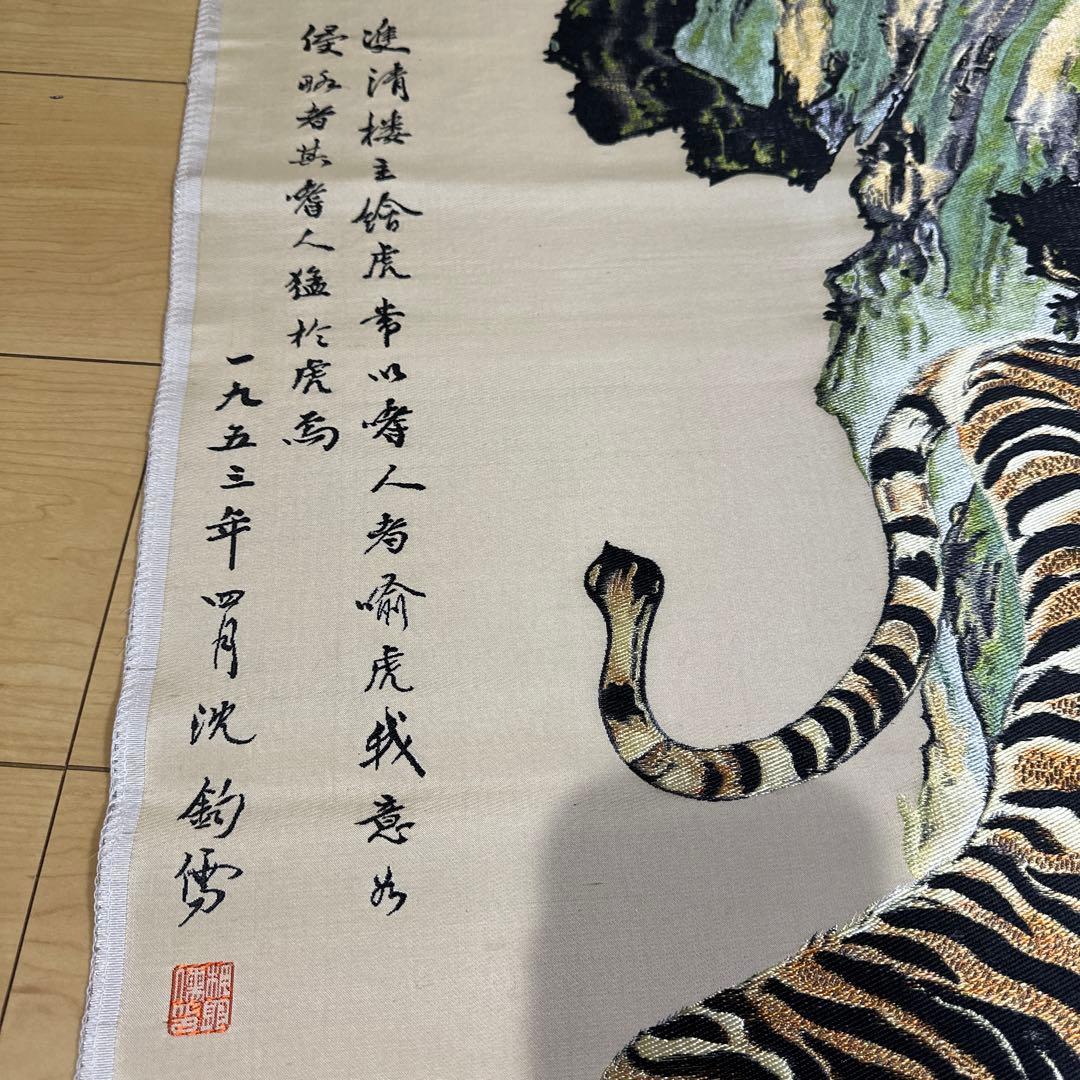 進清楼主絵虎常以嗜人者喻虎我意如
侵略者其嗜人猛於虎焉
一九五三年四月沈鈞儒